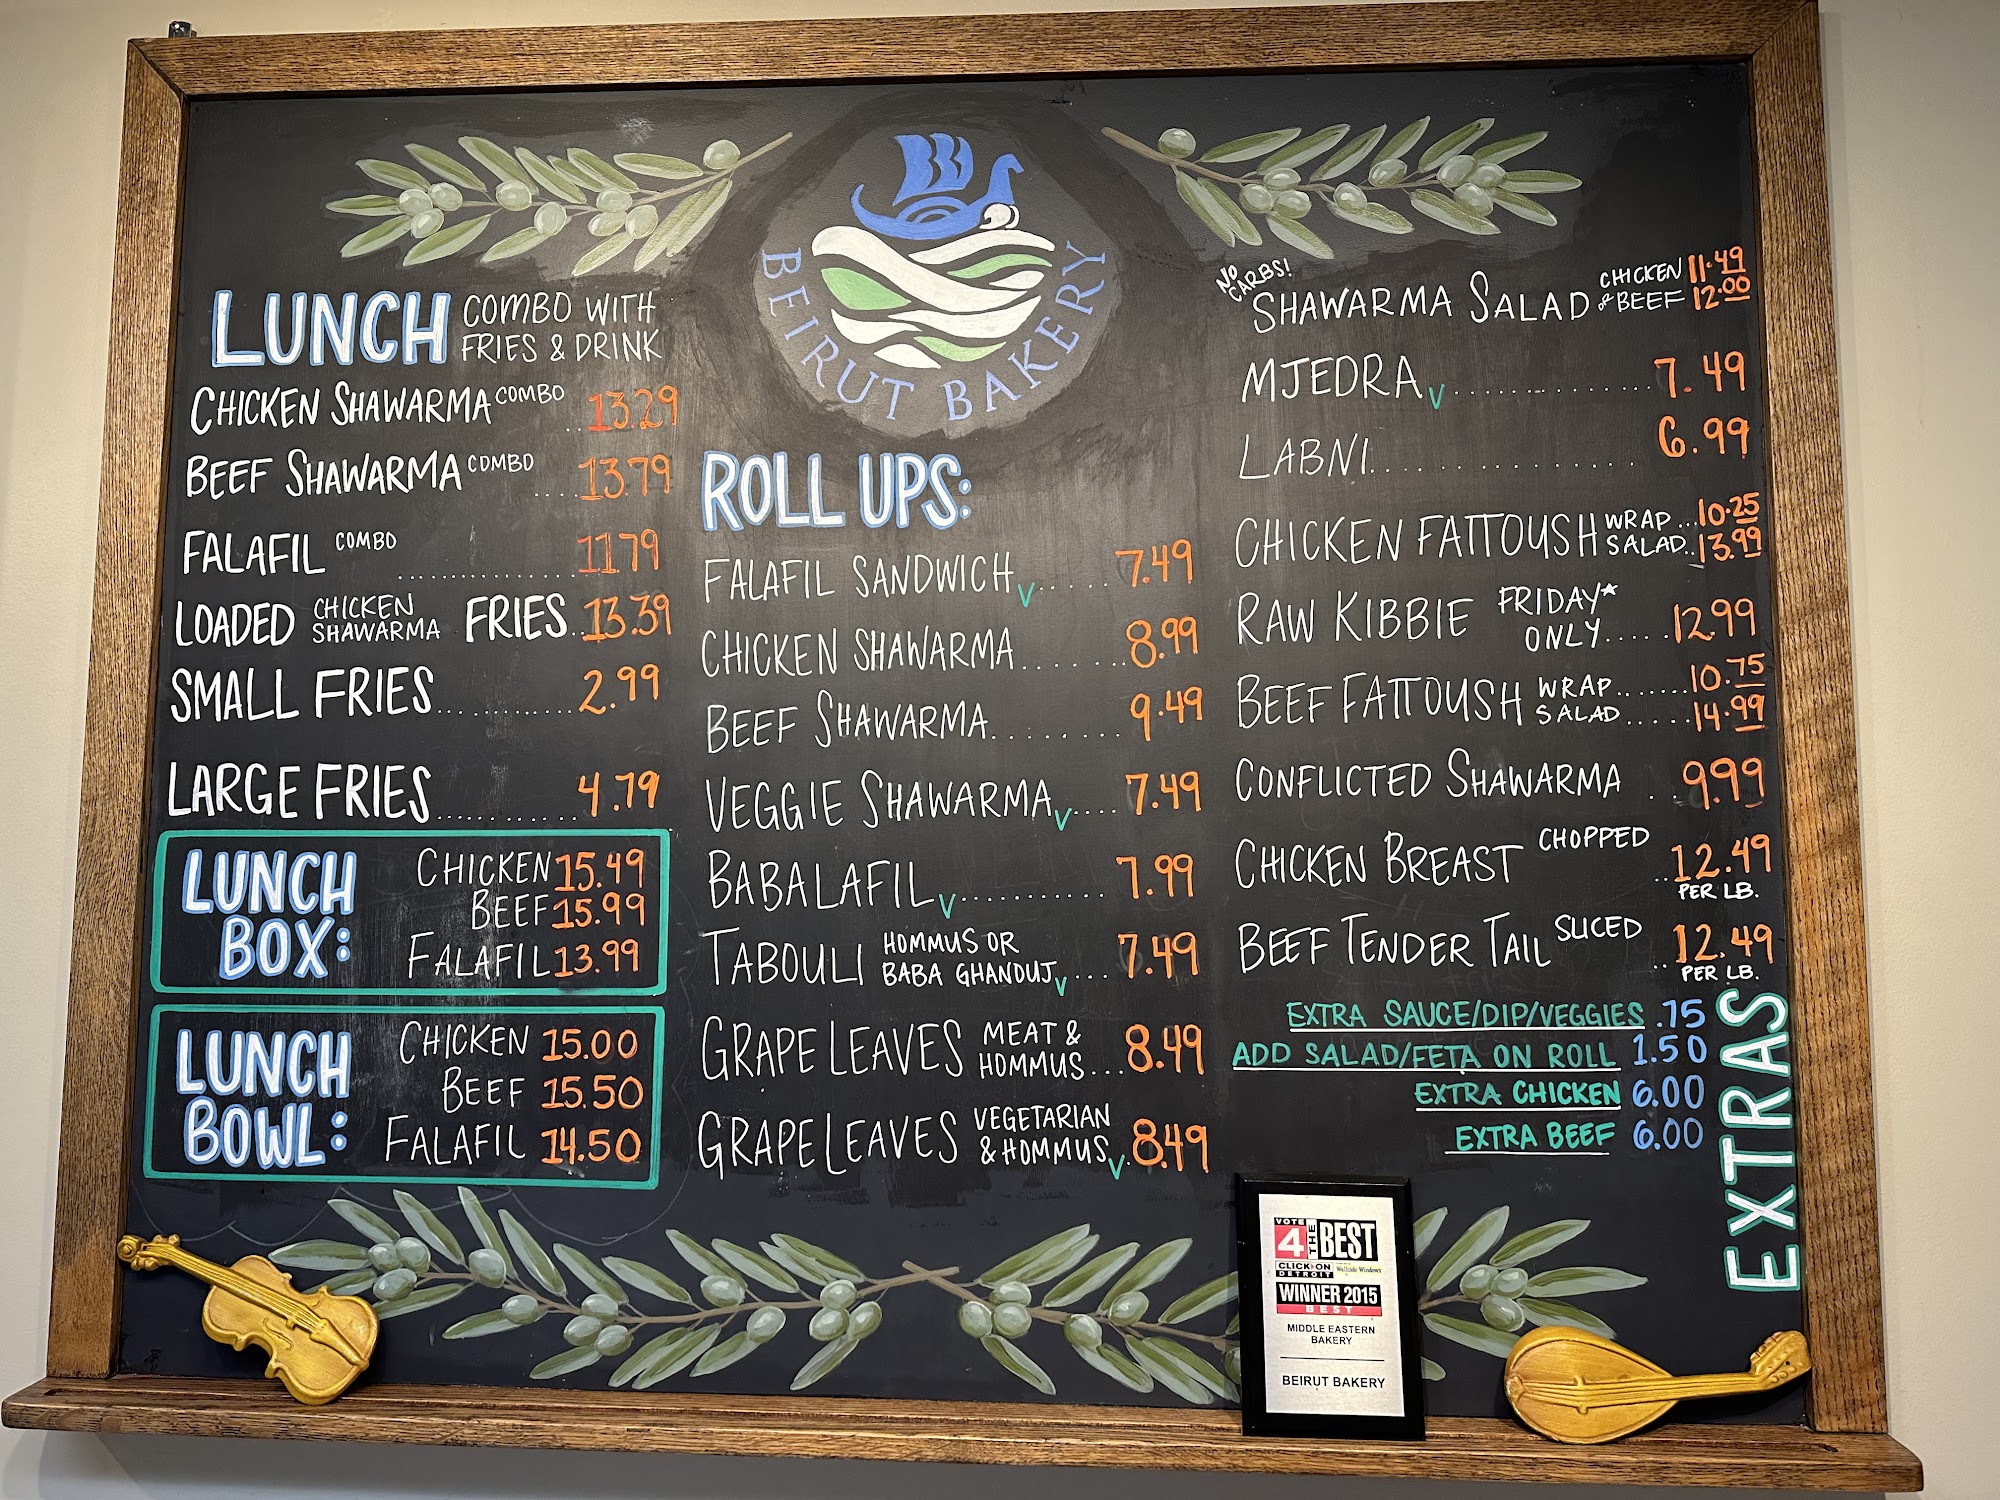 BEIRUT BAKERY
LUNCH COMBO WITH
FRIES & DRINK
CHICKEN SHAWARMA COMBO ..13.29
BEEF SHAWARMA COMBO ....13.79
FALAFIL COMBO ................11.79
LOADED CHICKEN SHAWARMA FRIES..13.39
SMALL FRIES............2.99
LARGE FRIES............4.79
LUNCH BOX:
CHICKEN 15.49
BEEF 15.99
FALAFIL 13.99
LUNCH BOWL:
CHICKEN 15.00
BEEF 15.50
FALAFIL 14.50
ROLL UPS:
FALAFIL SANDWICH V........7.49
CHICKEN SHAWARMA........8.99
BEEF SHAWARMA........9.49
VEGGIE SHAWARMA V....7.49
BABALAFIL V............7.99
TABOULI HOMMUS OR
BABA GHANDUJ V...7.49
GRAPE LEAVES MEAT &
HOMMUS...8.49
GRAPE LEAVES VEGETARIAN
& HOMMUS V.8.49
NO CARBS!
SHAWARMA SALAD CHICKEN 11.49
OR BEEF 12.00
MJEDRA V................7.49
LABNI................6.99
CHICKEN FATTOUSH WRAP...10.25
SALAD..13.99
RAW KIBBIE FRIDAY*
ONLY.....12.99
BEEF FATTOUSH WRAP.......10.75
SALAD......14.99
CONFLICTED SHAWARMA ...9.99
CHICKEN BREAST CHOPPED ..12.49
PER LB.
BEEF TENDER TAIL SLICED ..12.49
PER LB.
EXTRAS
EXTRA SAUCE/DIP/VEGGIES .75
ADD SALAD/FETA ON ROLL 1.50
EXTRA CHICKEN 6.00
EXTRA BEEF 6.00
VOTE 4 THE BEST
CLICK ON DETROIT
Wallside Windows
WINNER 2015
BEST
MIDDLE EASTERN
BAKERY
BEIRUT BAKERY